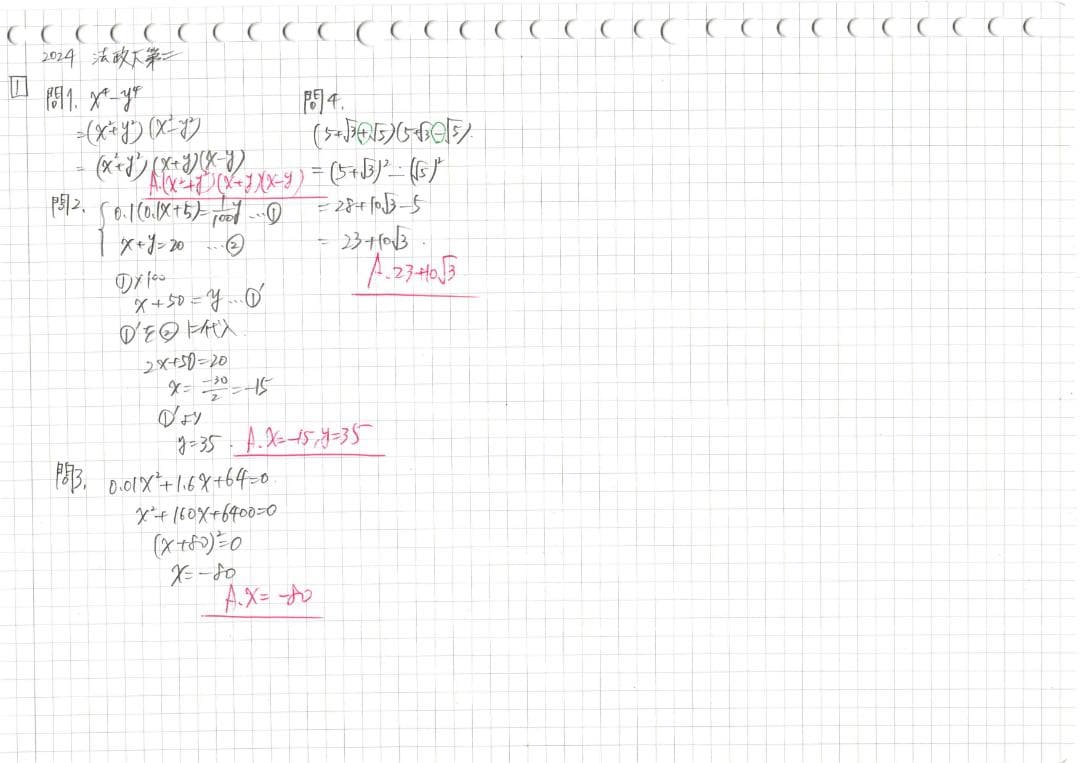 2024 法政大第二
1
問1. x⁴-y⁴
=(x²+y²)(x²-y²)
=(x²+y²)(x+y)(x-y)
A.(x²+y²)(x+y)(x-y)
問2. { 0.1(0.1x+5)=1/100 y …①
x+y=20 …②
①×100
x+50=y…①′
①′を②に代入
2x+50=20
x=-30/2=-15
①′より
y=35. A.x=-15,y=35
問3. 0.01x²+1.6x+64=0.
x²+160x+6400=0
(x+80)²=0
x=-80
A.x=-80
問4.
(5+√3+√5)(5+√3-√5).
=(5+√3)²-(√5)²
=28+10√3-5
=23+10√3.
A.23+10√3